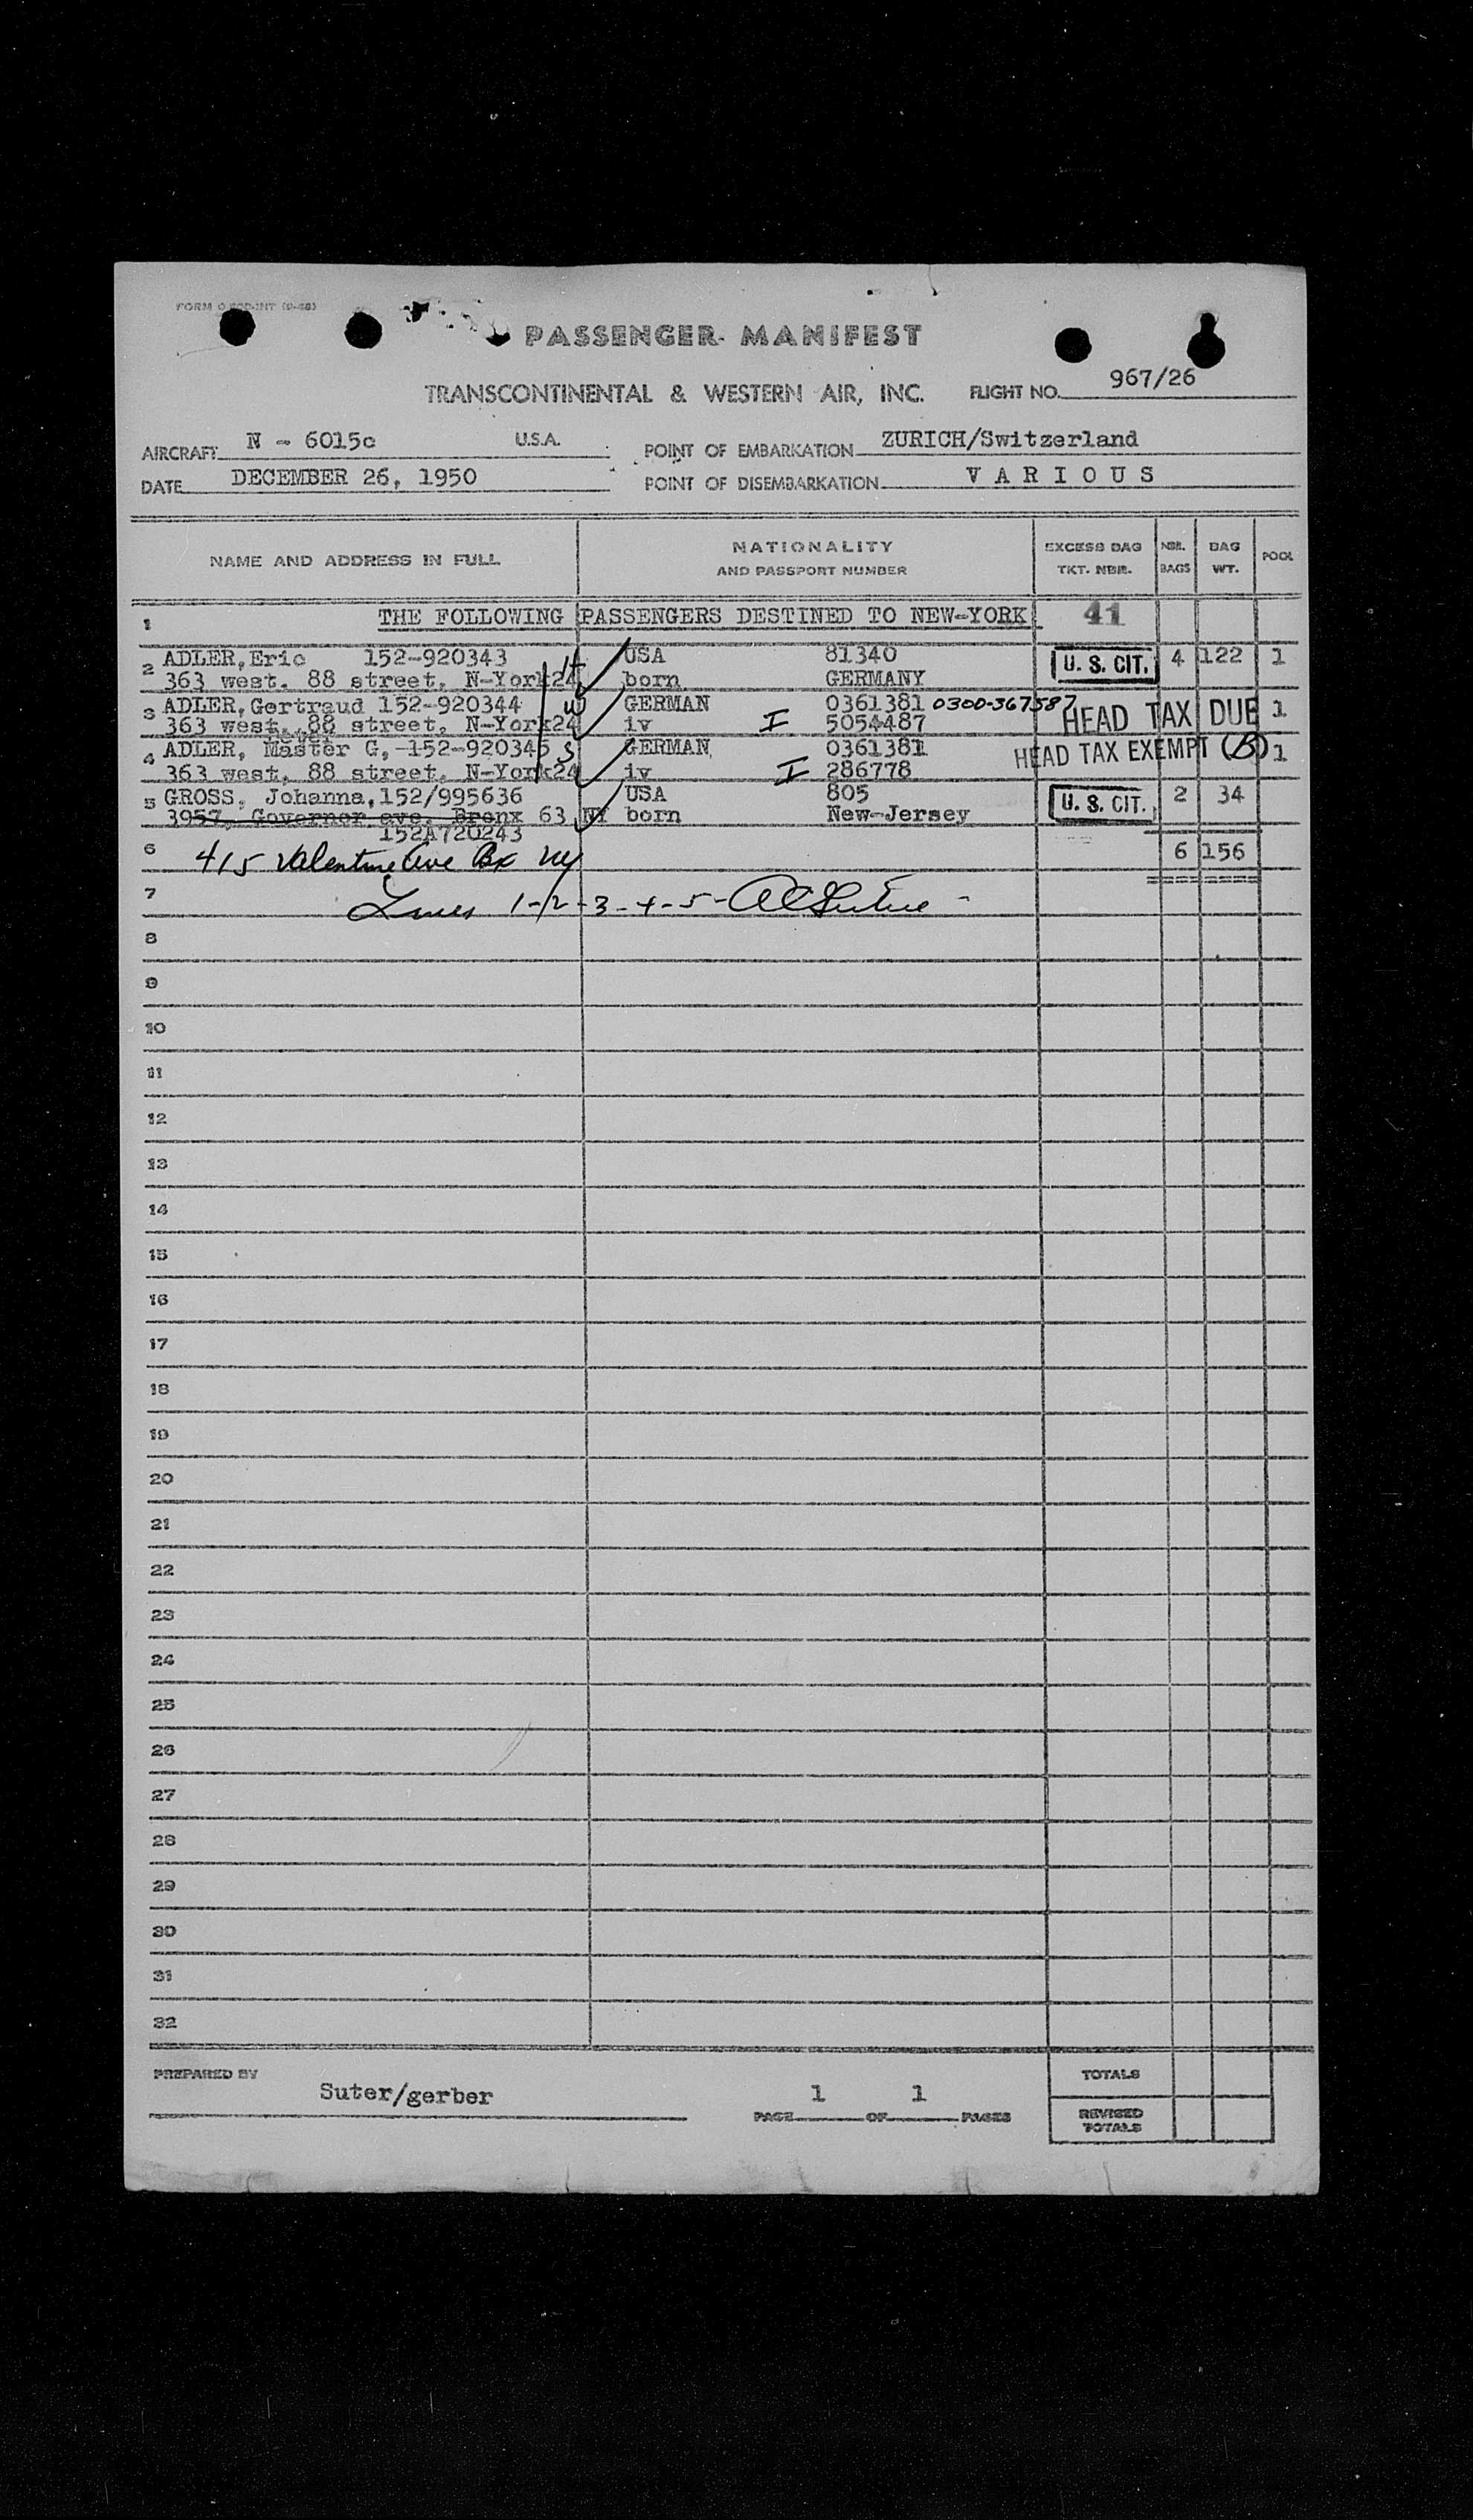 PASSENGER MANIFEST
TRANSCONTINENTAL & WESTERN AIR, INC. FLIGHT NO. 967/26
AIRCRAFT N - 6015c U.S.A. POINT OF EMBARKATION ZURICH/Switzerland
DATE DECEMBER 26, 1950 POINT OF DISEMBARKATION V A R I O U S
NAME AND ADDRESS IN FULL NATIONALITY AND PASSPORT NUMBER EXCESS BAG TKT. NBR. NBR. BAGS BAG WT. POOL
1 THE FOLLOWING PASSENGERS DESTINED TO NEW-YORK 41
2 ADLER,Eric 152-920343 H USA 81340 U. S. CIT. 4 122 1
363 west. 88 street, N-York24 born GERMANY
3 ADLER,Gertraud 152-920344 W GERMAN 0361381 0300-367587 HEAD TAX DUE 1
363 west. 88 street, N-York24 iv I 5054487
4 ADLER, Master G, 152-920345 S GERMAN 0361381 HEAD TAX EXEMPT (B) 1
363 west. 88 street, N-York24 iv I 286778
5 GROSS, Johanna,152/995636 USA 805 U. S. CIT. 2 34
3957, Governor ave. Bronx 63 NY born New-Jersey
152A720243
6 415 Valentine Ave Bx NY 6 156
7 Lines 1-2-3-4-5-
8
9
10
11
12
13
14
15
16
17
18
19
20
21
22
23
24
25
26
27
28
29
30
31
32
PREPARED BY Suter/gerber PAGE 1 OF 1 PAGES TOTALS
REVISED TOTALS